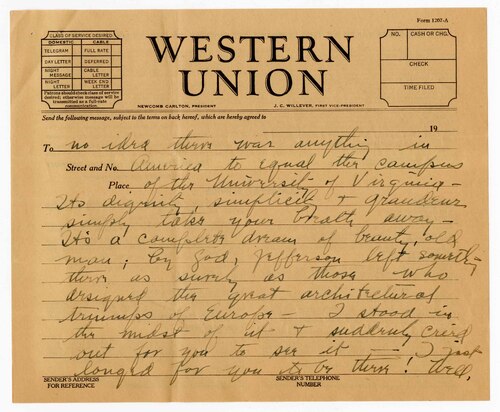 Form 1207-A
CLASS OF SERVICE DESIRED
DOMESTIC CABLE
TELEGRAM FULL RATE
DAY LETTER DEFERRED
NIGHT MESSAGE CABLE LETTER
NIGHT LETTER WEEK END LETTER
Patrons should check class of service desired; otherwise message will be transmitted as a full-rate communication.
WESTERN
UNION
NEWCOMB CARLTON, PRESIDENT J. C. WILLEVER, FIRST VICE-PRESIDENT
NO. CASH OR CHG.
CHECK
TIME FILED
Send the following message, subject to the terms on back hereof, which are hereby agreed to
19
To no idea there was anything in
Street and No. America to equal the campus
Place of the University of Virginia -
Its dignity, simplicity + grandeur
simply take your breath away -
It's a complete dream of beauty, old
man; by God, Jefferson left something
there as surely as those who
designed the great architectural
triumphs of Europe - I stood in
the midst of it + suddenly cried
out for you to see it - I just
longed for you to be there! Well,
SENDER'S ADDRESS FOR REFERENCE
SENDER'S TELEPHONE NUMBER